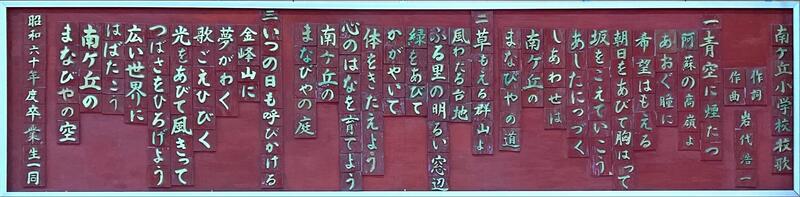 南ケ丘小学校校歌
作詞
作曲
岩代浩一
一青空に煙たつ
阿蘇の高嶺よ
あおぐ瞳に
希望はもえる
朝日をあびて胸はって
坂をこえていこう
あしたにつづく
しあわせは
南ケ丘の
まなびやの道
二草もえる群山よ
風わたる台地
ふる里の明るい窓辺
緑をあびて
かがやいて
体をきたえよう
心のはなを育てよう
南ケ丘の
まなびやの庭
三いつの日も呼びかける
金峰山に
夢がわく
歌ごえひびく
光をあびて風きって
つばさをひろげよう
広い世界に
はばたこう
南ケ丘の
まなびやの空
昭和六十年度卒業生一同